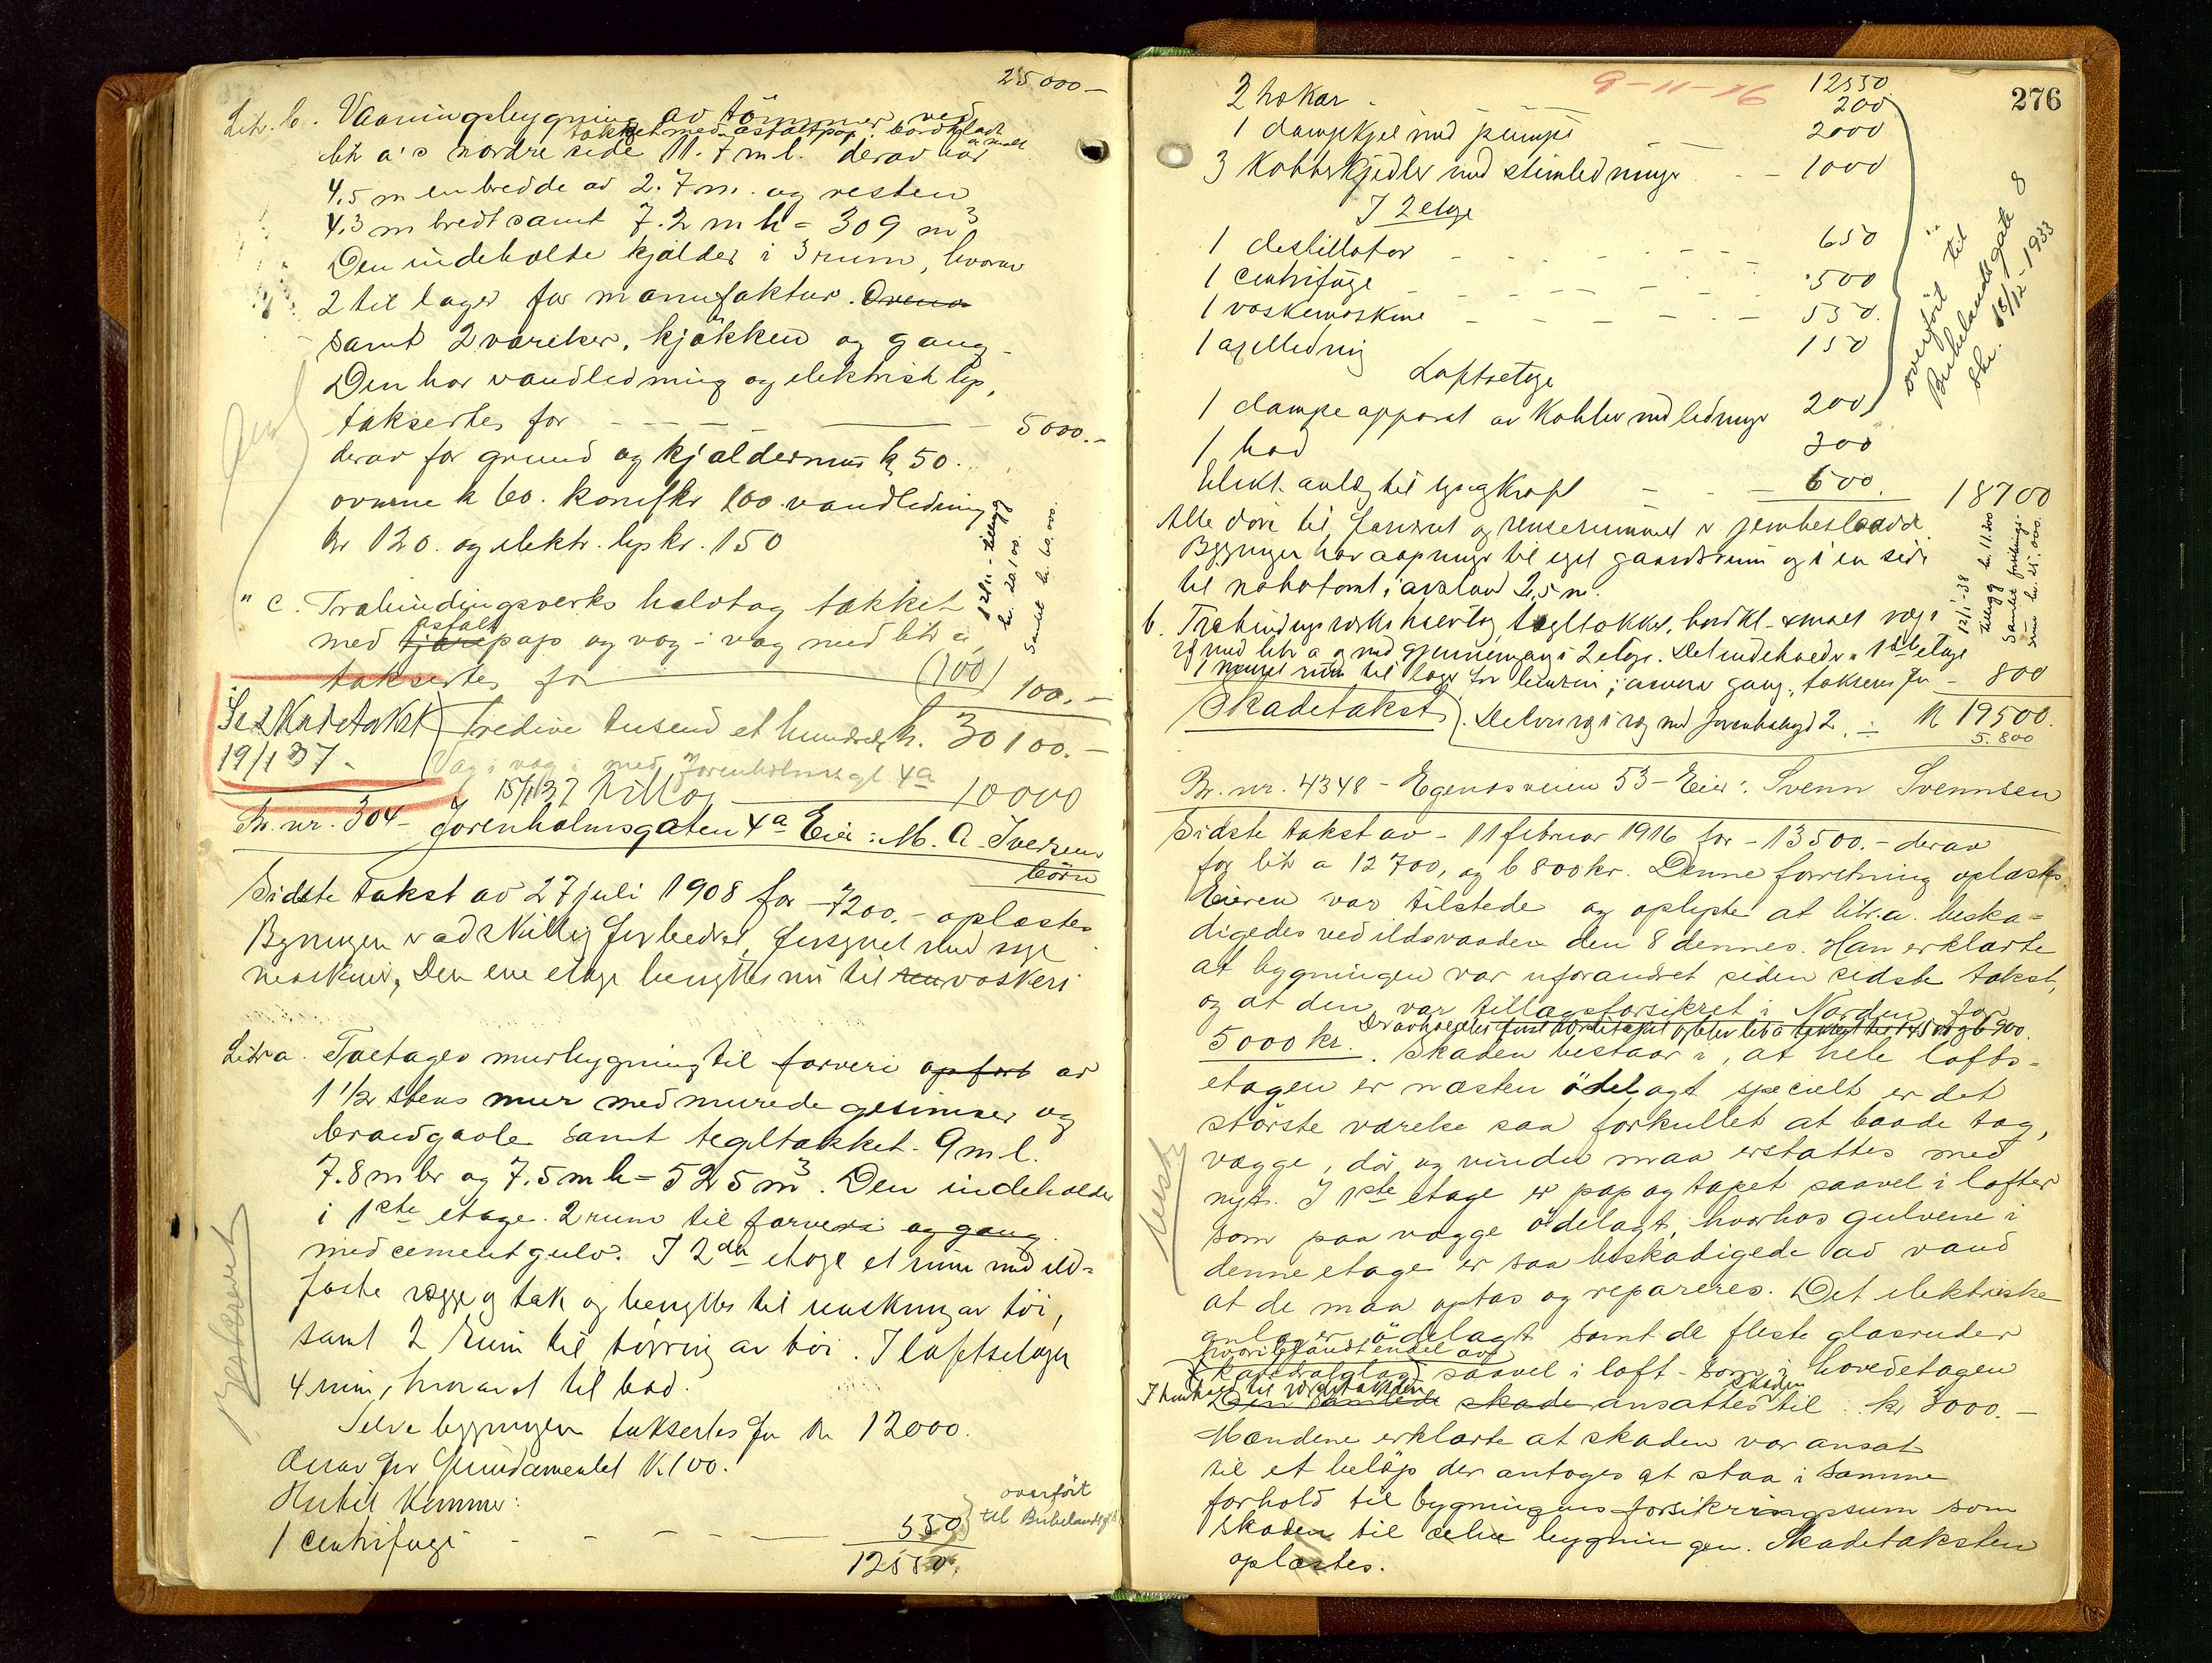 25000–
Litr. b. Vaaningsbygning av tömmer ved
takket med asfaltpap. bordklædt
& malt
litr a's nordre side 11.7 m l. derav har
4,5 m en bredde av 2.7 m. og resten
4.3 m bredt samt 7.2 m h = 309 m³
Den indeholder kjælder i 3 rum, hvorav
2 til lager for manufaktur. Ovena
samt 2 værelser, kjøkken og gang –
Den har vandledning og elektrisk lys,
takseres for – – – – 5000.–
derav for grund og kjældermur kr 50.
ovnene kr 60. komfkr 100. vandledning
kr 120. og elektr. lys kr. 150
12/11 – tillegg
kr. 20100.
Samlet kr. 60.000.
" c. Træbindingsverks halvtag takket
asfalt
med tjærepap og væg i væg med litr a,
takseres for (100) 100.–
Se skadetakst
19/1 37.–
Tredive tusend et hundrede kr. 30100.–
Væg i væg med Jorenholmsgt 4a
15/1 37 Tillæg 10000
Br. nr. 304 – Jorenholmsgaten 4a Eier: M. A. Iversens
börn
Sidste takst av 27 juli 1908 for – 7200.– oplæstes
Bygningen er adskillig forbedret, forsynet med nye
maskiner, Den ene etage benyttes nu til ren vaskeri
Litr a. Toetages murbygning til farveri opfört av
1 1/2 stens mur med murede gesimser og
brandgavle samt tegltakket. 9 m l.
7.8 m br og 7.5 m h = 525 m³. Den indeholder
i 1ste etage. 2 rum til farveri og gang
med cementgulv. I 2den etage et rum med ild-
faste vægge og tak og benyttes til renskning av töi,
samt 2 rum til törring av töi. I loftsetagen
4 rum, hvorav et til bad.
Selve bygningen takseres for kr 12000.
derav for fundamentet kr. 100.
Hertil kommer:
1 centrifuge – – – – 550
overfört
til Birkelandsgt 8
12550.
Beskrevet
9-11-16
276
12550.
2 hökar – 200
1 dampkjel med pumpe 2000
3 kobberkjedler med stimledninger – – 1000
I 2 etage
1 destillator – – – – 650
1 centrifuge – – – – – – 500
1 vaskemaskine – – – – – – 550.
1 axelledning 150
Loftsetage
1 dampeapparat av kobber med ledninger 200
1 bad 300
Elekt. anlæg til lys og kraft – – – 600. 18700
overfört til
Birkelandsgate 8
Skr. 18/12 – 1933
Alle döre til farveriet og renserummet er jernbeslaaede
Bygningen har aapninger til eget gaardsrum og i en side
til nabotomt, i avstand 2,5 m.
12/1-38
tillegg kr. 11.300
Samlet forsikrings-
sum kr. 25.000.
b. Træbindingsverks halvtag tegltakket, bordkl. & malt væg i
væg med litr a og med gjennemgang i 2 etage. Det indeholder i 1ste etage
1 muret rum til lager for benzin, i annen gang, takseres for – 800
Skadetakst). Delvis væg i væg med Jorenholmsgt 2. – kr 19500.
5.800
Br. nr. 4348 – Egenæsveien 53 – Eier: Svenn Svennsen
Sidste takst av – 11 februar 1916 for – 13500.– derav
for litr a 12700, og b 800 kr. Denne forretning oplæstes.
Eieren var tilstede og oplyste at litr. a. beska-
digedes ved ildsvaaden den 8 dennes. Han erklærte
at bygningen var uforandret siden sidste takst,
og at den var tillægsforsikret i Norden for
5000 kr.
Skaden bestaar i, at hele lofts-
etagen er næsten ödelagt specielt er det
störste værelse saa forkullet at baade tag,
vægge, dör og vinduer maa erstattes med
nyt. I 1ste etage er pap og tapet saavel i lofter
som paa vægge ödelagt, hvorhos gulvene i
denne etage er saa beskadigede ad vand
at de maa optas og repareres. Det elektriske
anlæg er ödelagt samt de fleste glasruder
hvoriblandt endel av
(katedralglas) saavel i loft – som i hovedetagen
I henhold til værditaksten
skaden
Den samlede skade ansættes til kr 3000.–
Mændene erklærte at skaden var ansat
til et belöp der antages at staa i samme
forhold til bygningens forsikringssum som
skaden til selve bygningen. Skadetaksten
oplæstes.